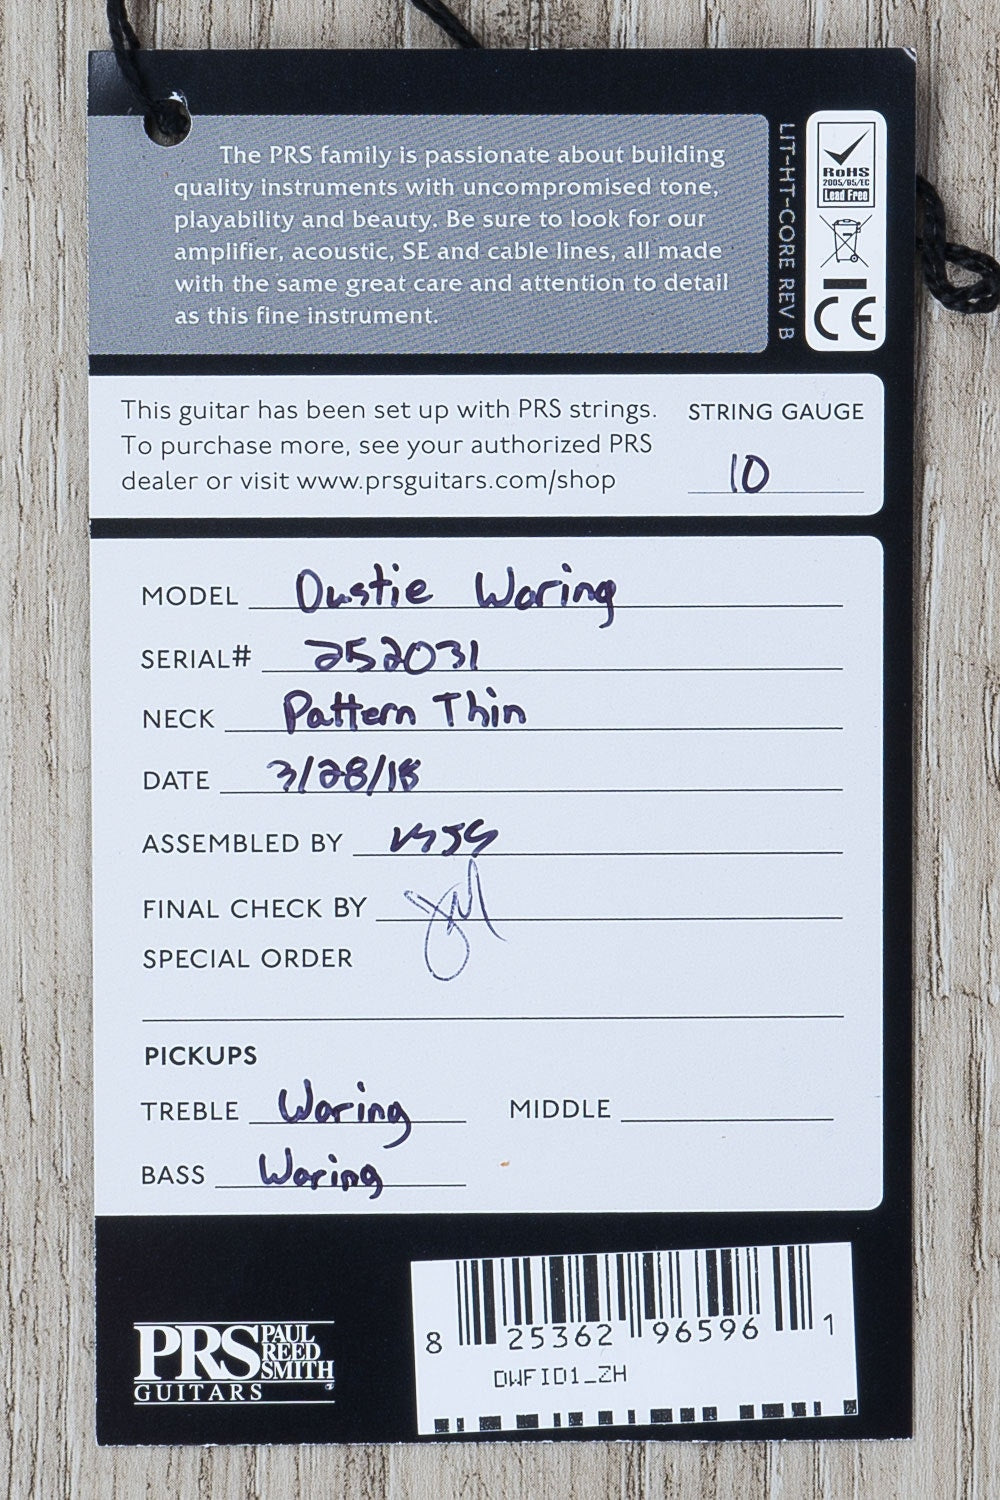 The PRS family is passionate about building
quality instruments with uncompromised tone,
playability and beauty. Be sure to look for our
amplifier, acoustic, SE and cable lines, all made
with the same great care and attention to detail
as this fine instrument.
LIT-HT-CORE REV B
RoHS
2005/95/EC
Lead Free
CE
This guitar has been set up with PRS strings.
To purchase more, see your authorized PRS
dealer or visit www.prsguitars.com/shop
STRING GAUGE
10
MODEL Dustie Waring
SERIAL# 252031
NECK Pattern Thin
DATE 3/28/18
ASSEMBLED BY
FINAL CHECK BY
SPECIAL ORDER
PICKUPS
TREBLE Waring MIDDLE
BASS Waring
PRS PAUL REED SMITH
GUITARS
8 25362 96596 1
DWFID1_ZH